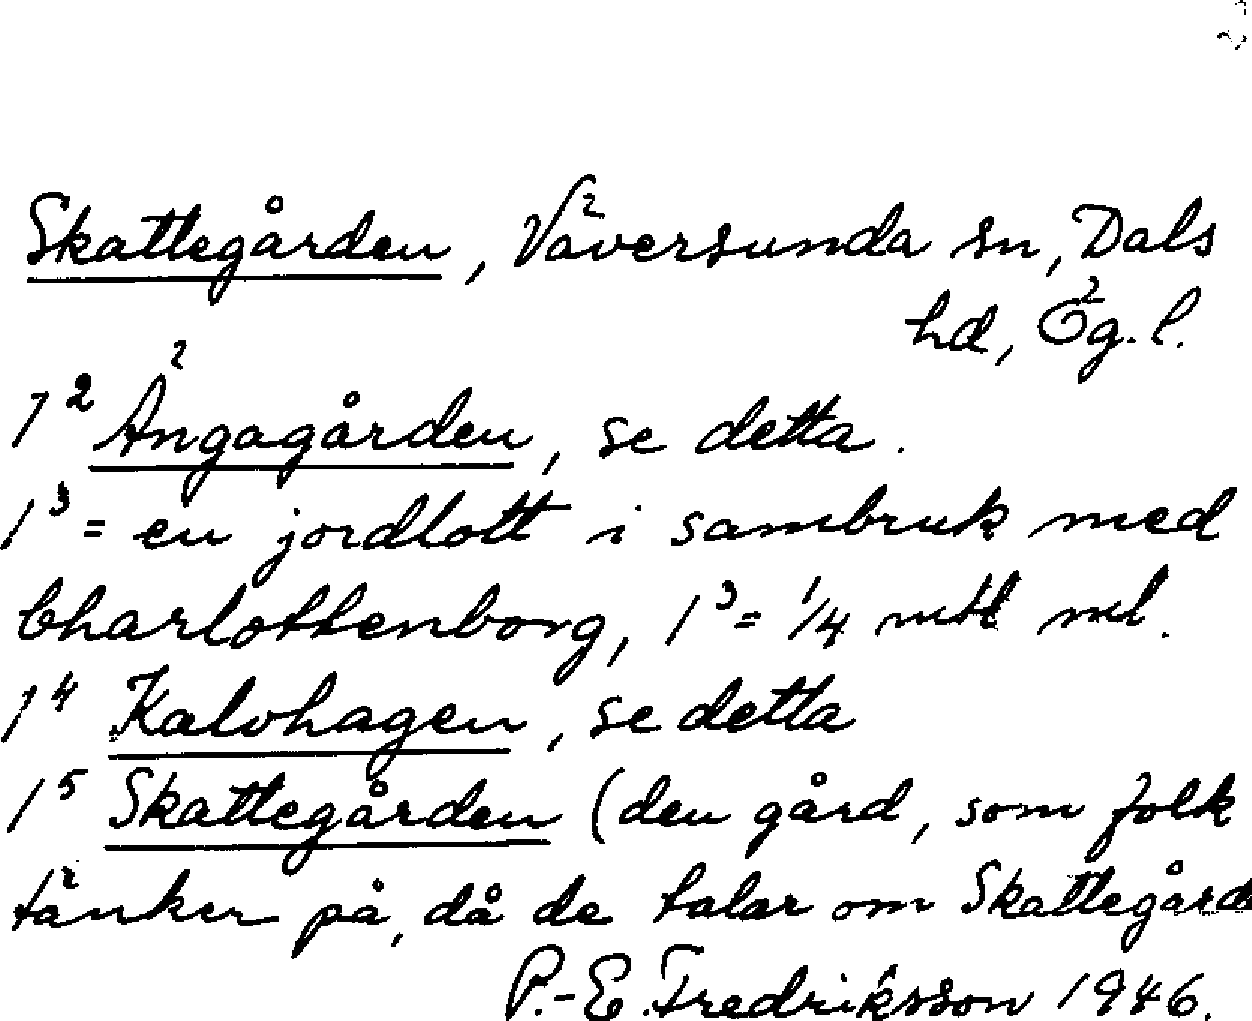 Skattegården, Väversunda sn, Dals
hd, Ög. l.
1² Ängagården, se detta.
1³ = en jordlott i sambruk med
Charlottenborg, 1³ = 1/4 mtl
1⁴ Kalvhagen, se detta
1⁵ Skattegården (den gård, som folk
tänker på, då de talar om Skattegård
P.-E. Fredriksson 1946.